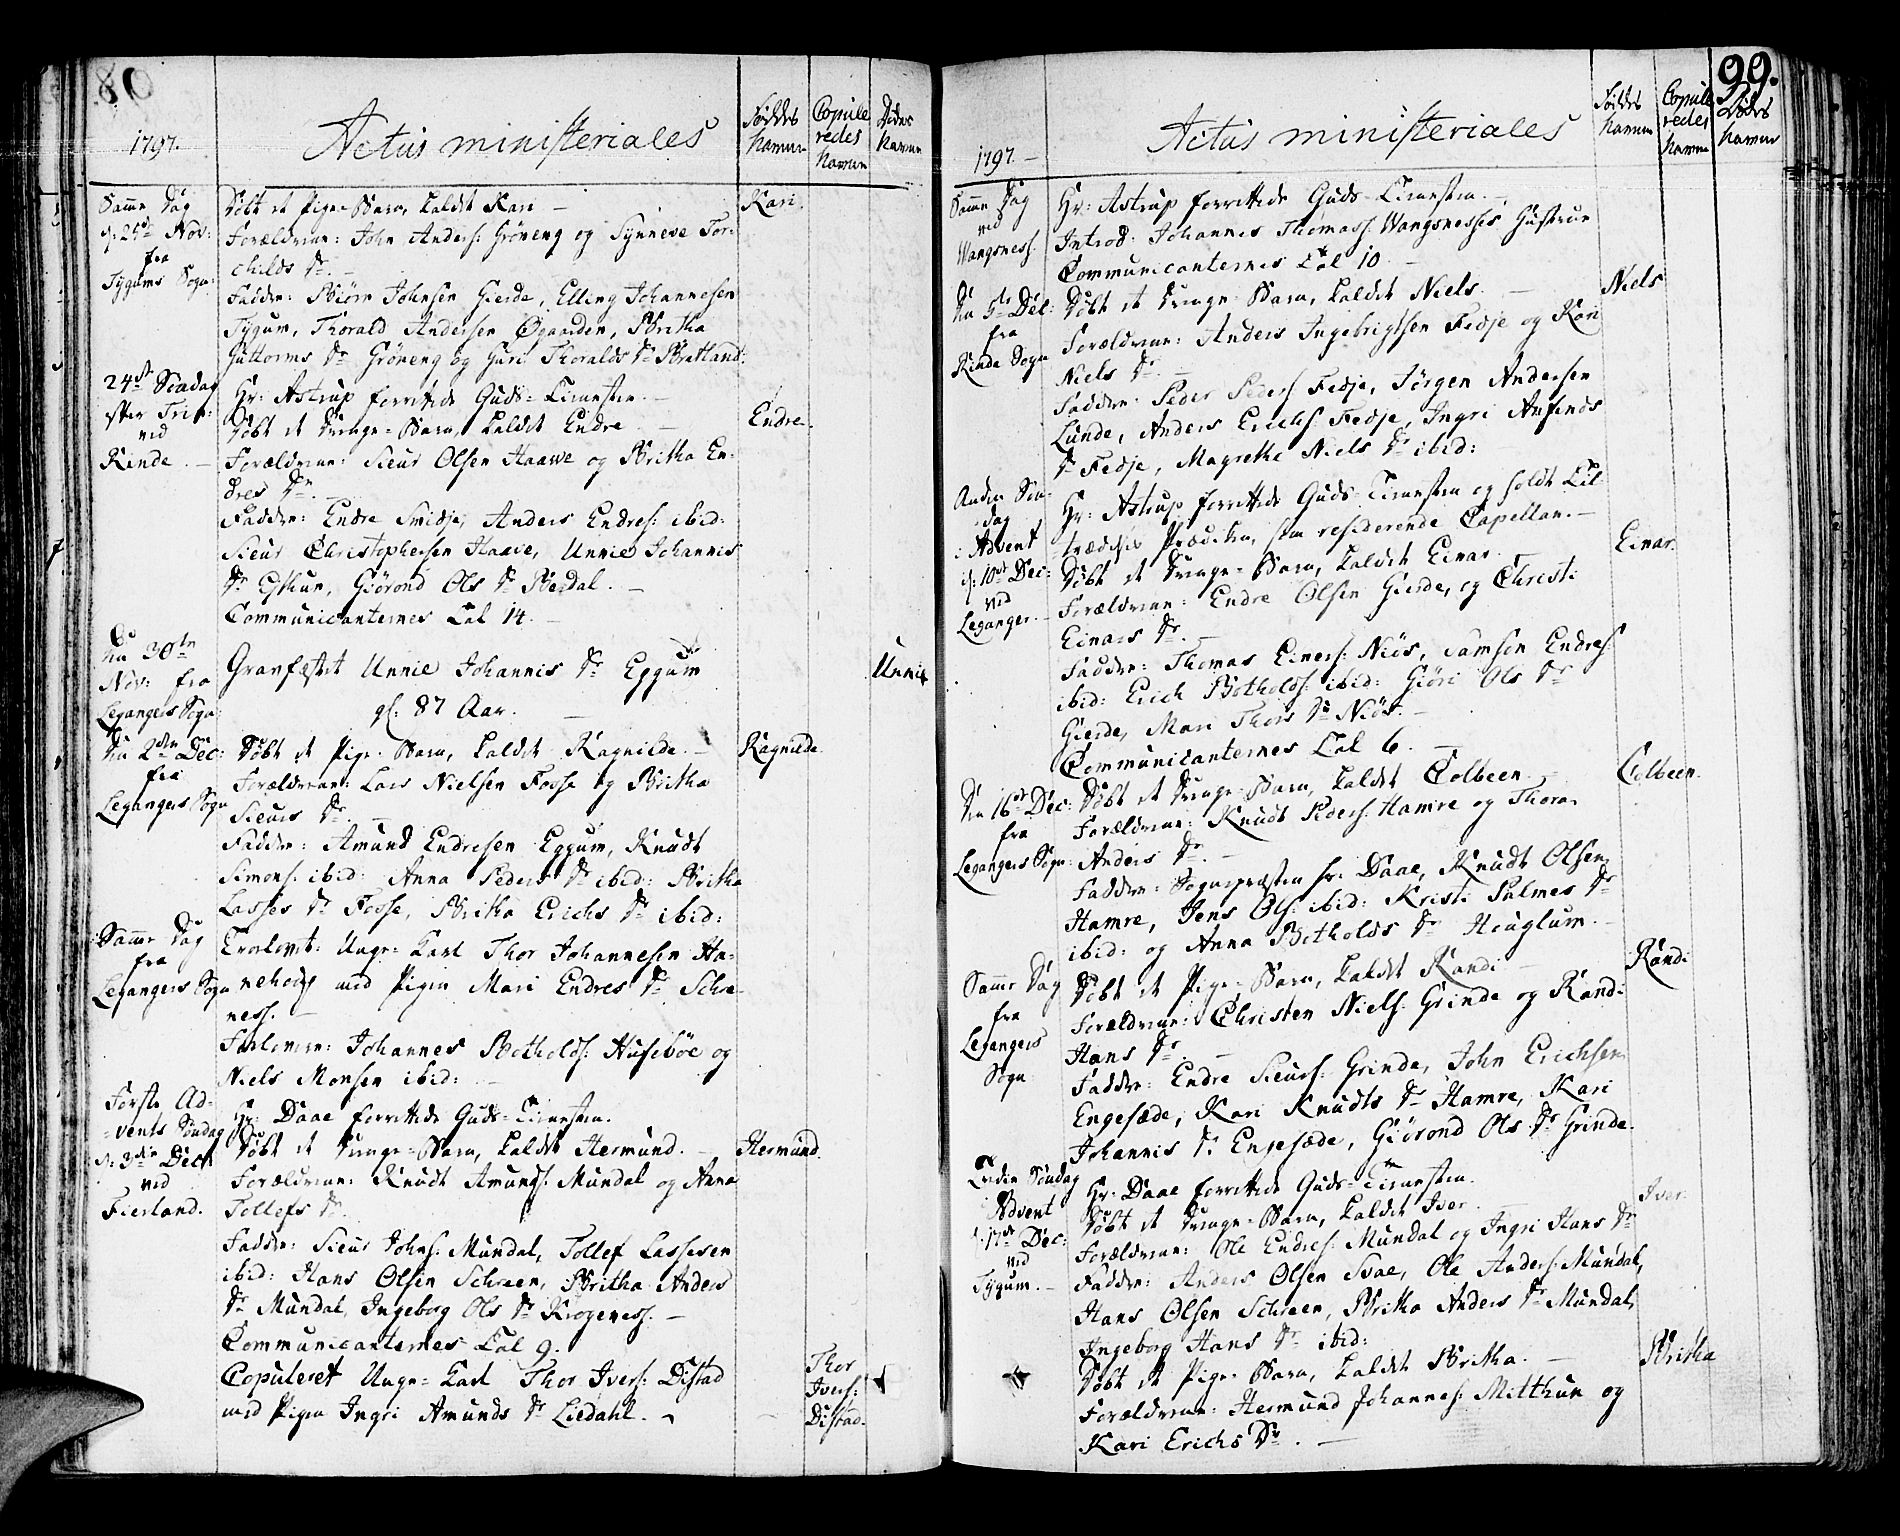 1797.
Actus ministeriales
Føddes Navne
Copule redes Navne
Dødes Navne
Samme Dag
d: 25de Nov:
fra
Tygums Sogn:
Døbt et Pige-Barn, kaldet Kari —
Kari.
Forældrene: John Anders: Grøneng og Synneve Tor-
childs Dr. —
Faddere: Biørn Johnsen Gierde, Elling Johannesen
Tygum, Thorald Andersen Øgaarden, Britha
Guttorms Dr Grøneng og Guri Thoralds Dr Bratland.
24de Søndag
efter Trin:
ved
Rinde. —
Hr: Astrup forrettede Guds-Tienesten. —
Døbt et Drenge-Barn, kaldet Endre. —
Endre.
Forældrene: Sieur Olsen Haave og Britha En-
dres Dr. —
Faddere: Endre Smidje, Anders Endres: ibid:
Sieur Christophersen Haave, Unnie Johannis
Dr Eskum, Giørond Ols Dr Bedal. —
Communicanternes Tal 14. —
Den 30te
Nov: fra
Legangers Sogn
Gravfæstet Unnie Johannis Dr Eggum
gl: 87 Aar. —
Unnie
Den 2den Dec:
fra
Legangers Sogn
Døbt et Pige-Barn, kaldet Ragnilde. —
Ragnilde.
Forældrene: Lars Nielsen Fosse og Britha
Sieurs Dr. —
Faddere: Amund Endresen Eggum, Knudt
Simons: ibid: Anna Peders Dr ibid: Britha
Lasses Dr Fosse, Britha Erichs Dr ibid:
Samme Dag
fra
Legangers Sogn
Trolovet: Unge-Karl Thor Johannesen Ha-
nehoug med Pigen Mari Endres Dr Schre-
ness. —
Forlovere: Johannes Botholds: Husebøe og
Niels Monsen ibid: —
Første Ad-
vents Søndag
d: 3die Dec:
ved
Fierland.
Hr: Daae forrettede Guds-Tienesten.
Døbt et Drenge-Barn, kaldet Hermund. —
Hermund.
Forældrene: Knudt Amunds: Mundal og Anna
Tollefs Dr.
Faddere: Sieur Johns: Mundal, Tollef Lassesen
ibid: Hans Olsen Schreen, Britha Anders
Dr Mundal, Ingeborg Ols Dr Krogeness. —
Communicanternes Tal 9.
Copuleret Unge-Karl Thor Ivers: Distad
med Pigen Ingri Amunds Dr Liedahl. —
Thor
Ivers:
Distad.
99.
1797. —
Actus ministeriales
Føddes Navne
Copule redes Navne
Dødes Navne
Samme Dag
ved
Wangsness.
Hr: Astrup forrettede Guds-Tienesten. —
Introd: Johannes Thomass: Wangsnesses Hustrue
Communicanternes Tal 10. —
Den 5te Dec:
fra
Rinde Sogn
Døbt et Drenge-Barn, kaldet Niels. —
Niels
Forældrene: Anders Ingebrigtsen Fedje og Kari
Niels Dr. —
Faddere: Peder Peders: Fedje, Jørgen Andersen
Lunde, Anders Erichs: Fedje, Ingri Anfinds
Dr Fedje, Magrethe Niels Dr ibid:
Anden Søn-
dag
i Advent
d: 10de Dec:
ved
Leganger. —
Hr: Astrup forrettede Guds-Tienesten og holdt Til-
trædelses Prædiken, som residerende Capellan. —
Døbt et Drenge-Barn, kaldet Einar.
Einar.
Forældrene: Endre Olsen Gierde, og Christi
Einars Dr. —
Faddere: Thomas Einers: Niøs, Samson Endres:
ibid: Erich Botholds: ibid: Giøri Ols Dr
Gierde, Mari Thors Dr Niøs. —
Communicanternes Tal 6. —
Den 16de Dec:
fra
Legangers Sogn:
Døbt et Drenge-Barn, kaldet Colbeen. —
Colbeen.
Forældrene: Knudt Peders: Hamre og Thora
Anders Dr. —
Faddere: Sognepræsten hr: Daae, Knudt Olsen
Hamre, Jens Ols: ibid: Kristi Palmes Dr
ibid: og Anna Botholds Dr Henglum. —
Samme Dag
fra
Legangers
Sogn
Døbt et Pige-Barn, kaldet Randi —
Randi
Forældrene: Christen Niels: Grinde og Randi
Hans Dr. —
Faddere: Endre Sieurs: Grinde, John Erichsen
Engesæde, Kari Knudts Dr Hamre, Kari
Johannis Dr. Engesæde, Giørond Ols Dr Grinde.
Tredie Søndag
i Advent
d. 17de Dec:
ved
Tygum. —
Hr: Daae forrettede Guds-Tienesten.
Døbt et Drenge-Barn, kaldet Iver. —
Iver.
Forældrene: Ole Endres: Mundal og Ingri Hans Dr
Faddere: Anders Olsen Svae, Ole Anders: Mundal,
Hans Olsen Schreen, Britha Anders Dr Mundal,
Ingeborg Hans Dr ibid:
Døbt et Pige-Barn, kaldet Britha. —
Britha
Forældrene: Hermund Johannes: Mitthun og
Kari Erichs Dr. —